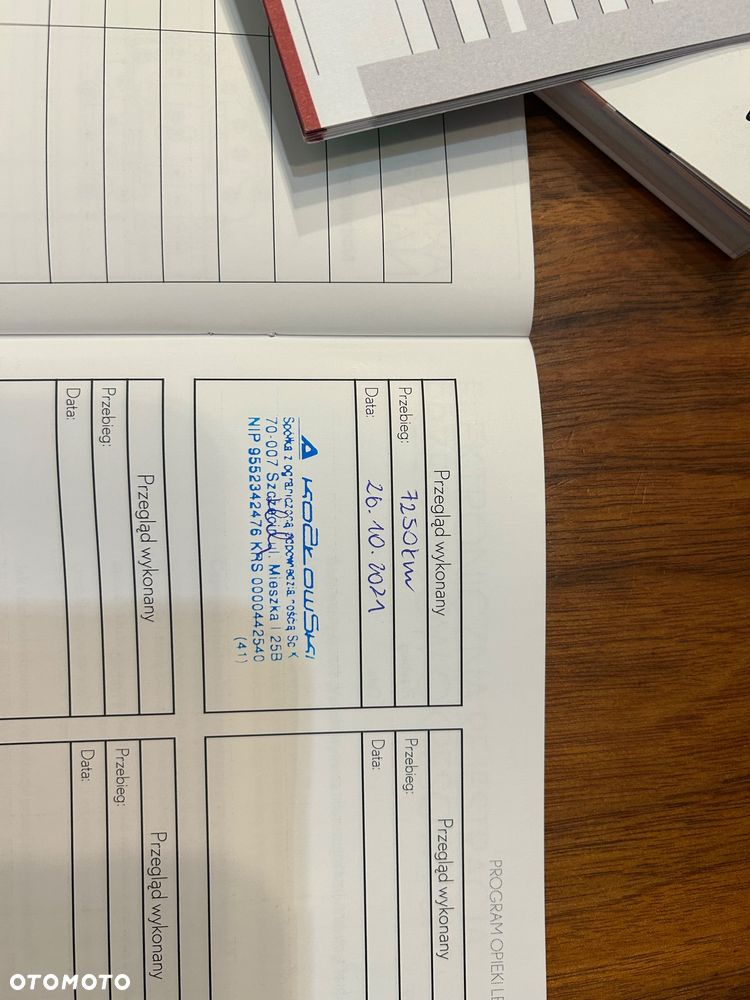 PROGRAM OPIEKI LE
Przegląd wykonany
Przebieg: 7250km
Data: 26.10.2021
KOZŁOWSKI
Spółka z ograniczoną odpowiedzialnością Sp.K
70-007 ul. Mieszka I 25B
NIP 9552342476 KRS 0000442540
(41)
Przegląd wykonany
Przebieg:
Data:
Przegląd wykonany
Przebieg:
Data:
Przegląd wykonany
Przebieg:
Data:
OTOMOTO